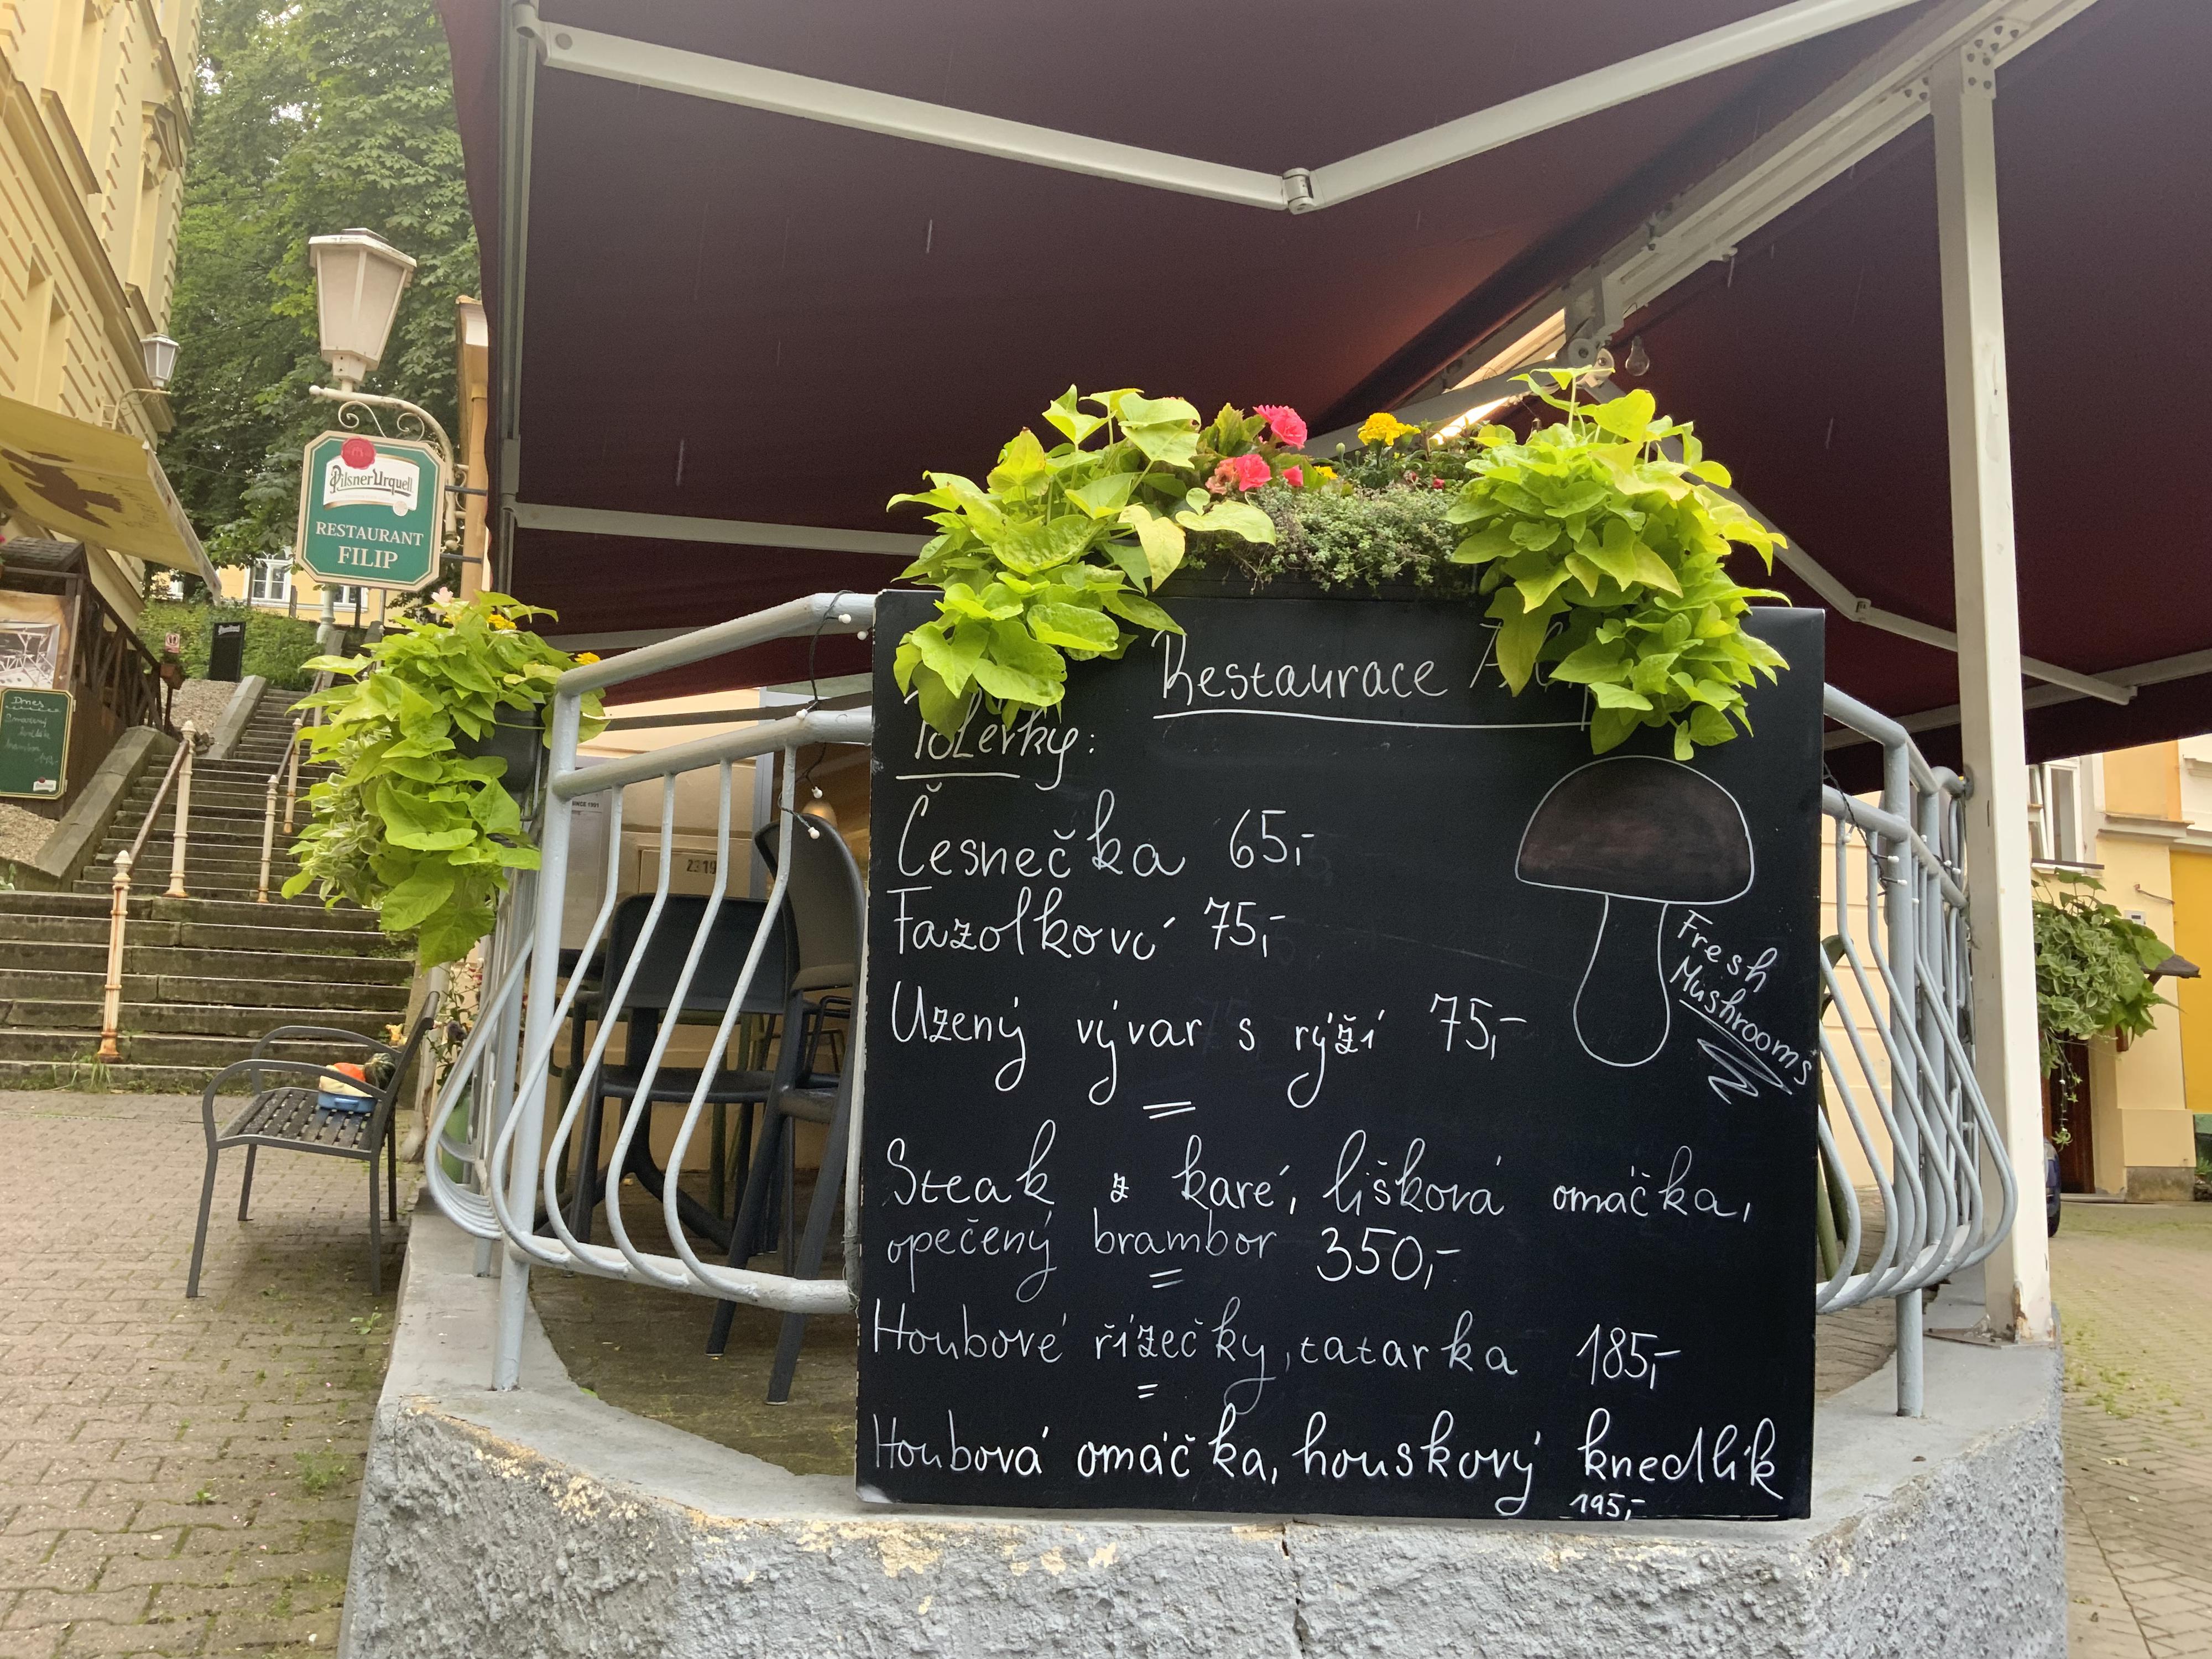 Pilsner Urquell
RESTAURANT
FILIP
Dnes
SINCE 1901
2319
Restaurace
Polévky:
Česnečka 65,-
Fazolková 75,-
Uzený vývar s rýží 75,-
=
Steak z karé, lišková omáčka,
opečený brambor 350,-
=
Houbové řízečky, tatarka 185,-
=
Houbová omáčka, houskový knedlík
195,-
Fresh
Mushrooms